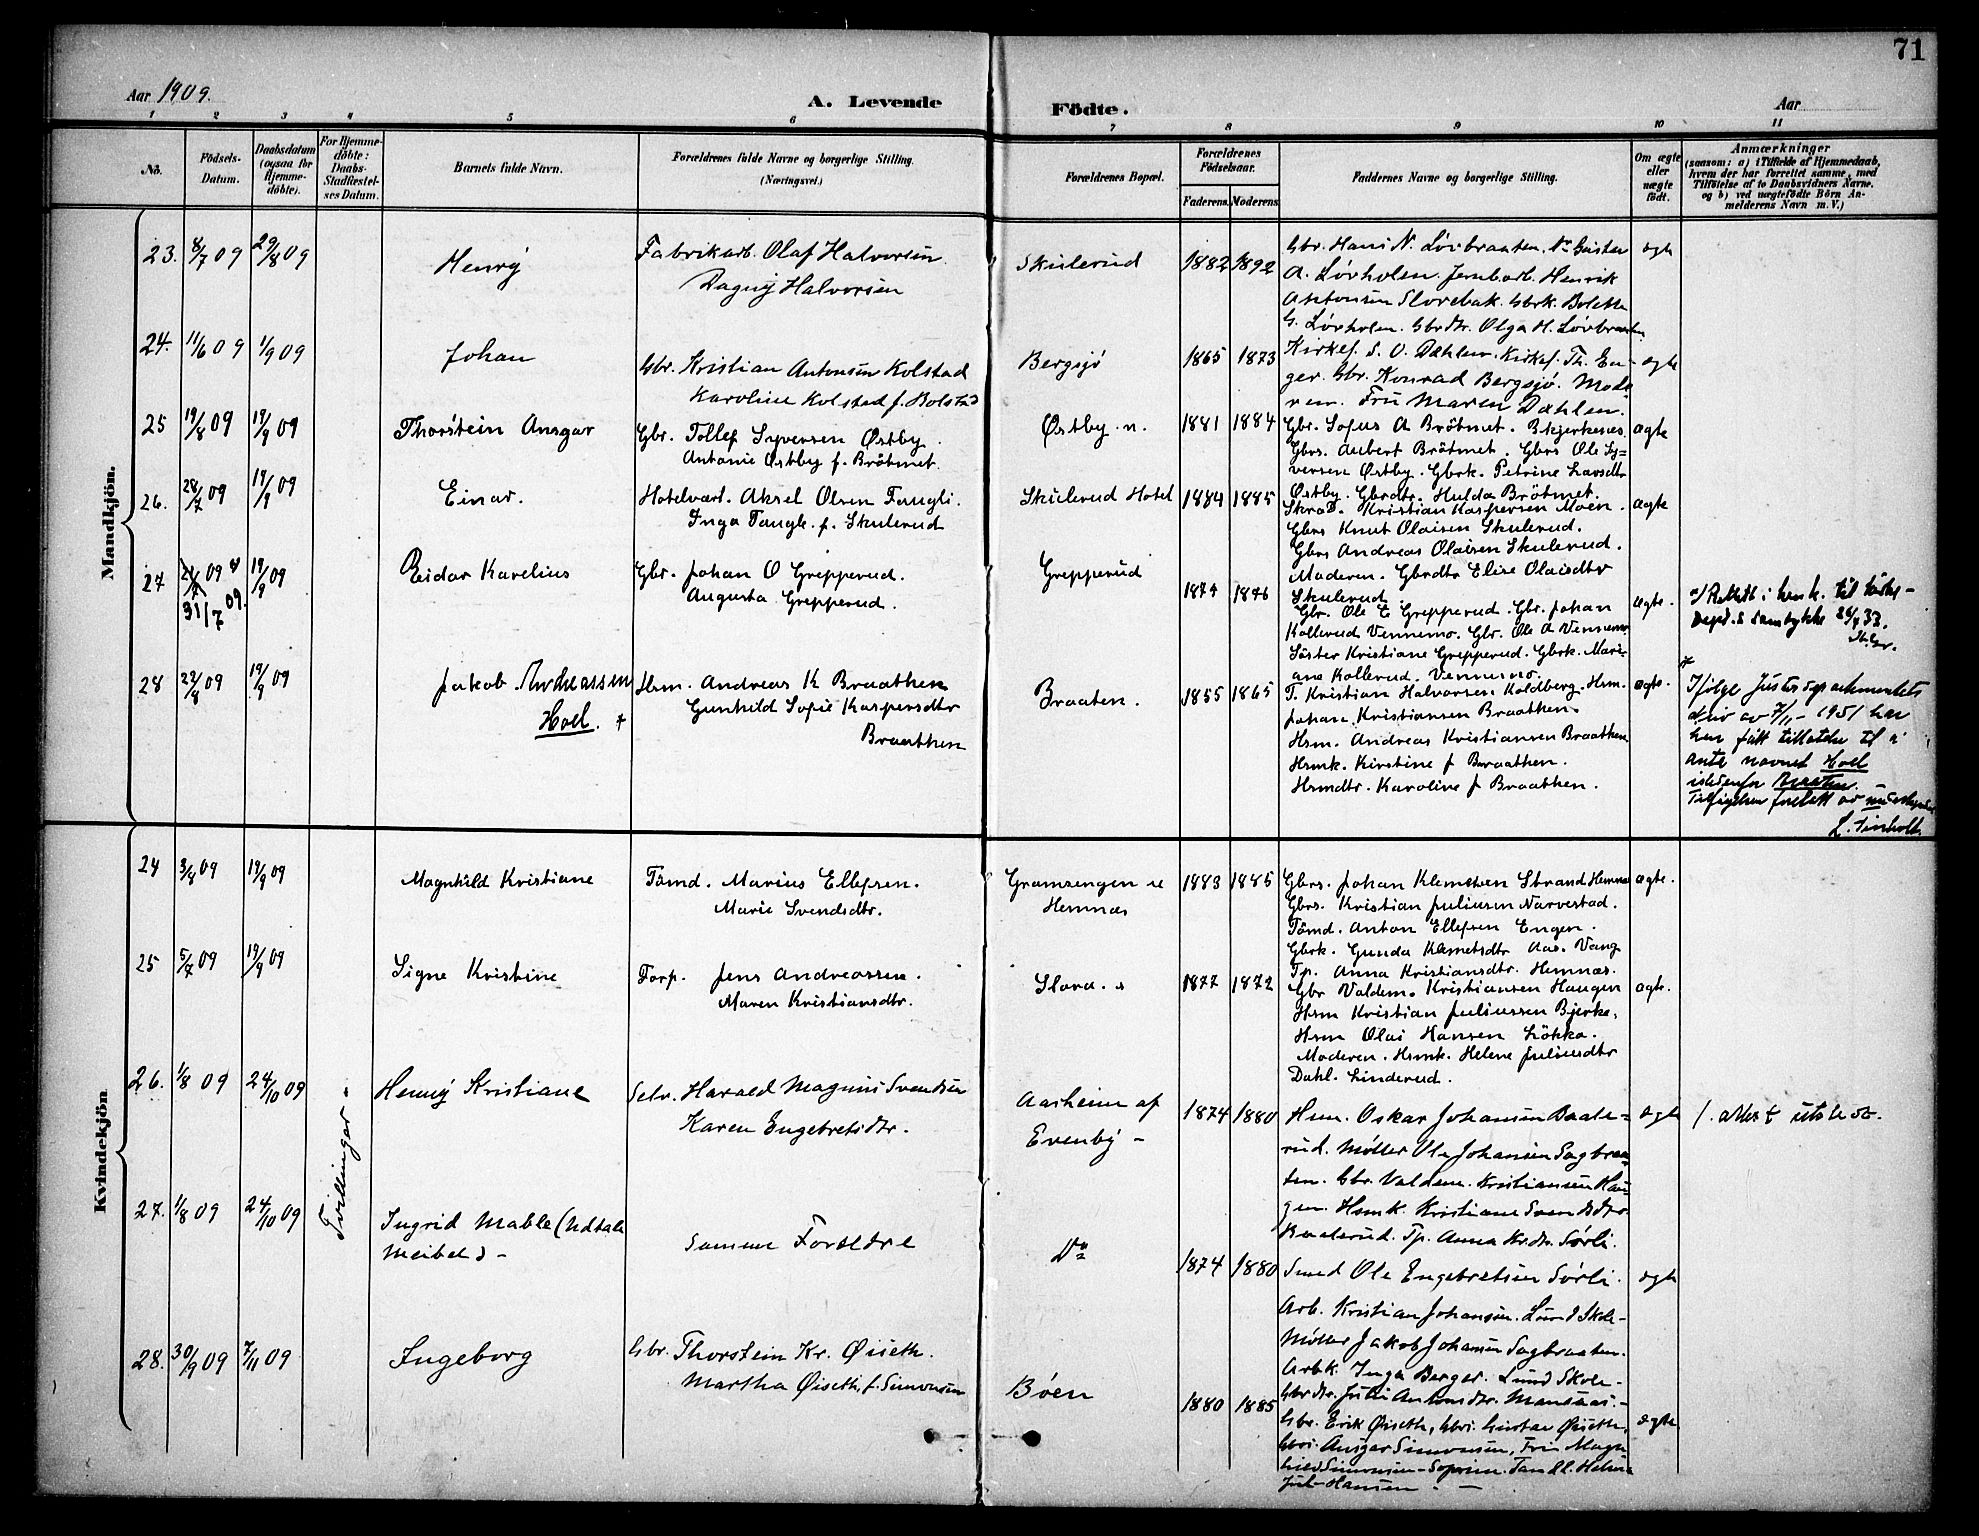 71
Aar 1909.
A. Levende
Födte.
Aar
1 2 3 4 5 6 7 8 9 10 11
No.
Födsels-
Datum.
Daabsdatum
(ogsaa for
Hjemme-
döbte).
For Hjemme-
döbte:
Daabs-
Stadfæstel-
ses Datum.
Barnets fulde Navn.
Forældrenes fulde Navne og borgerlige Stilling.
(Næringsvei.)
Forældrenes Bopæl.
Forældrenes
Födselsaar.
Faderens. Moderens.
Faddernes Navne og borgerlige Stilling.
Om ægte
eller
uægte
født.
Anmærkninger
(saasom: a) i Tilfælde af Hjemmedaab,
hvem der har forrettet samme, med
Tilföielse af to Daabsvidners Navne.
og b) ved uægtefödte Börn An-
melderens Navn m. V.)
Mandkjön.
23. 8/7 09 29/8 09
Henry
Fabrikarb. Olaf Halvorsen
Dagny Halvorsen
Skulerud
1882 1892
Gbr. Hans N. Lövbraaten.
A. Lövholen. Jernbarb. Henrik
Antonsen Slorebak. Gbrk. Bolette
G. Lövholen. Gbrdtr. Olga H. Lövbraaten
ægte
24. 11/6 09 1/9 09
Johan
Gbr. Kristian Antonsen Kolstad
Karoline Kolstad f. Bolstad
Bergsjø
1865 1873
Kirkes. S. O. Dæhlen. Kirkes. Th. En-
ger. Gbr. Konrad Bergsjø. Mode
ren. Fru Maren Dæhlen.
ægte
25 19/8 09 19/9 09
Thorstein Ansgar
Gbr. Tollef Syversen Østby.
Antonie Østby f. Brötmet.
Østby. n.
1881 1884
Gbr. Sofus A Brötmet. Bkjerkenes
Gbrs. Aubert Brötmet. Gbrs Ole Sy=
versen Østby. Gbrk. Petrine Larsdtr
Østby. Gbrdtr. Hulda Brötmet.
ægte
26. 28/7 09 19/9 09
Einar.
Hotelvært. Aksel Olsen Tangli.
Inga Tangli. f. Skulerud
Skulerud Hotel
1884 1885
Skræd. Kristian Kaspersen Moen.
Gbrs Knut Olaisen Skulerud.
Gbrs Andreas Olaisen Skulerud.
Moderen. Gbrdtr Elise Olaisdtr
Skulerud
ægte
27 21/7 09
31/7 09.
19/9 09
Reidar Karelius
Gbr. Johan O Grepperud.
Augusta Grepperud.
Grepperud
1876
Gbr. Ole E Grepperud. Gbr. Johan
Kollerud Vennemo. Gbr. Ole A Vennemo
Söster Kristiane Grepperud. Gbrk. Mari-
ane Kollerud. Vennemo.
ægte.
Rettet i henh. til Kirke-
dept.s samtykke 33.
28 09 19/9 09
Jakob Andreassen
Hoel.
Hsm. Andreas K Braathen
Gunhild Sofie Kaspersdtr
Braathen
Braaten.
1855 1865
T. Kristian Halvorsen Koldberg. Hsm.
Johan Kristiansen Braathen.
Hsm. Andreas Kristiansen Braathen
Hsmk. Kirstine f Braathen.
Hsmdtr. Karoline f Braathen.
ægte.
Ifølge Justisdepartementets
skriv av 7/11 - 1951 har
han fått tillatelse til å
anta navnet Hoel
istedenfor Braaten.
Tilføyelsen foretatt av
Kvindekjön
24 3/8 09 19/9 09
Magnhild Kristiane
Tömd. Marius Ellefsen.
Marie Svendsdtr.
Gramsengen u
Hemnæs
1883 1885
Gbrs. Johan Klemetsen Strand Hemnæs
Gbrs. Kristian Juliusen Narvestad.
Tömd. Anton Ellefsen Engen.
Gbrk. Gunda Klemetsdtr Aas. Vang
Tp. Anna Kristiansdtr. Hemnæs.
ægte.
25 5/7 09 19/9 09
Signe Kristine
Forp. Jens Andreassen.
Maren Kristiansdtr.
Slora. s
1877 1872
Gbr Valdem. Kristiansen Haugen
Hsm Kristian Juliussen Bjerke.
Hsm Olai Hansen Lökka.
Moderen. Hsmk. Helene Juliusdtr
Dahl. Linderud.
ægte.
26. 1/8 09 24/10 09
Tvillinger -
Henny Kristiane
Selv. Harald Magnus Svendsen
Karen Engebretsdtr.
Aasheim af
Evenby -
1874 1880
Hsm. Oskar Johansen Baale=
rud. Møller Ole Johansen Sagbraa=
ten. Gbr. Valdem. Kristiansen Hau-
gen. Hsmk. Kristiane Svendsdtr.
Baalerud. Tp. Anna Kr.dtr. Sørli.
ægte
1. attest utstedt.
27. 1/8 09 24/10 09
Ingrid Mable (Udtale
Meibel) -
Samme Forældre
Do
1874 1880
Smed Ole Engebretsen Sørli.
Arb. Kristian Johansen. Lund Skole-
Møller Jakob Johansen Sagbraaten.
Arbk. Inga Berger. Lund Skole-
Gbrdtr. Julie Antonsdtr. Mansaas. -
ægte
28. 30/9 09 7/11 09
Ingeborg
Gbr. Thorstein Kr. Øiseth.
Martha Øiseth, f. Simonsen
Bøen
1880 1885
Gbr. Erik Øiseth, Gbrs. Gustav Øiseth,
Gbrs. Ansgar Simonsen, Fru Magn
hild Simonsen -
Hansen. -
ægte